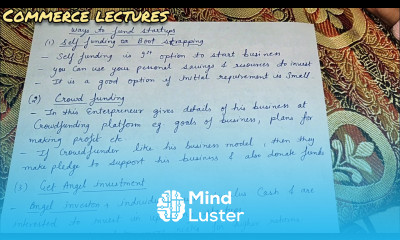 COMMERCE LECTURES
Ways to fund startups
(1) Self funding or Boot strapping
- Self funding is 1st option to start business
- You can use your personal savings & resources to invest
- It is a good option if initial requirement is small.
(2) Crowd funding
- In this Enterpreneur gives details of his business at
Crowdfunding platform eg goals of business, plans for
making profit etc
- If Crowdfunder like his business model, then they
make pledge to support his business & also donate funds
(3) Get Angel Investment
- Angel Investor Cash & are
interested to invest
Mind
Luster